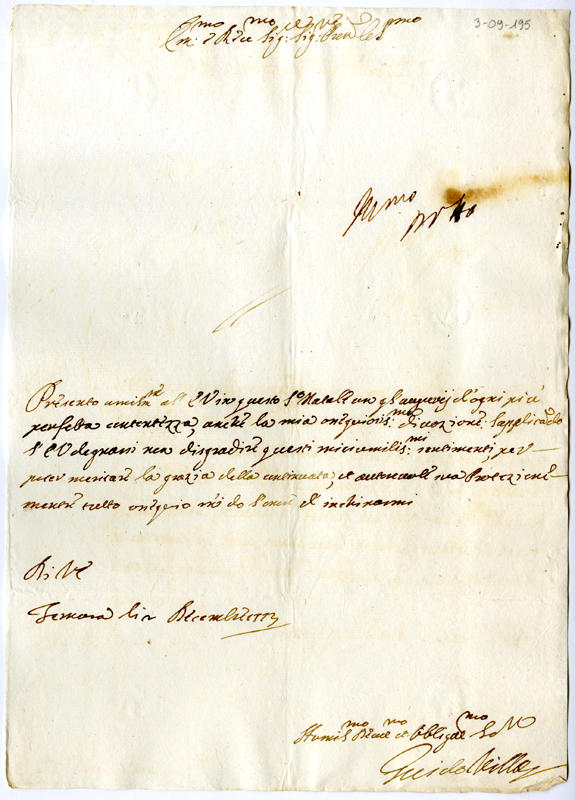 3-09-195
Em:mo e R:mo Sig:r Sig:r
Presento umilm:te all'E V in questo S:o Natale con gl'augurij d'ogni più
perfetta contentezza, anche la mia ossequiosis:ma divozione. Supplicando
l'E V degnarsi non disgradire questi miei umilis:mi sentimenti, per
poter meritare la grazia della continuata, et autorevole sua Protezione
mentre tutto ossequio mi do l'onore d'inchinarmi
Di V E
Ferrara li Decembre
Humil:mo et Obblig:mo
Guido Villa